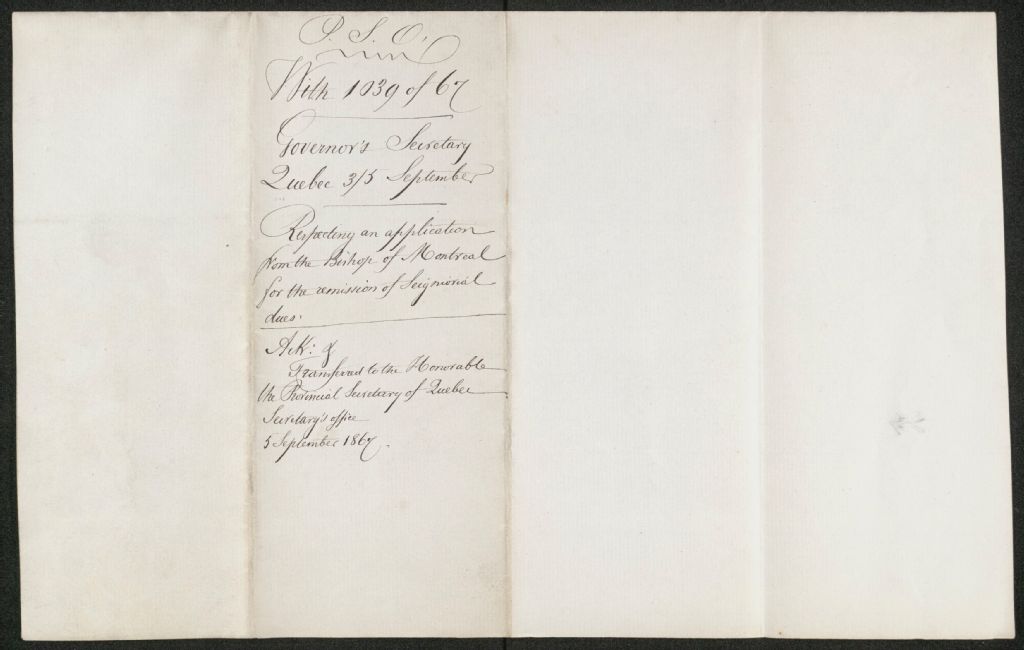 P. S. O.
With 1039 of 67
Governor's Secretary
Quebec 3/5 September
Respecting an application
from the Bishop of Montreal
for the remission of Seigniorial
dues.
Ack: &
Transferred to the Honorable
the Provincial Secretary of Quebec
Secretary's office
5 September 1867.